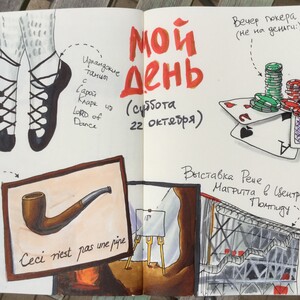 Мой
день
(суббота
22 октября)
Ирландские
танцы
с
Сарой
Кларк из
LORD of
Dance
Вечер покера
(не на деньги!)
Выставка Рене
Магритта в Центре
Помпиду
Ceci n'est pas une pipe